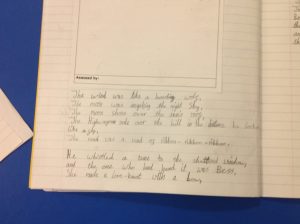 Assessed by:
The wind was like a howling wolf,
The moon was the night sky,
The moon shone over the
The highwayman rode over the hill in the distance his
like a
The road was a road of ribbon-ribbon-ribbon,
He whistled a tune to the shuttered window,
and the one who had heard it was Bess,
She made a love-knot with a